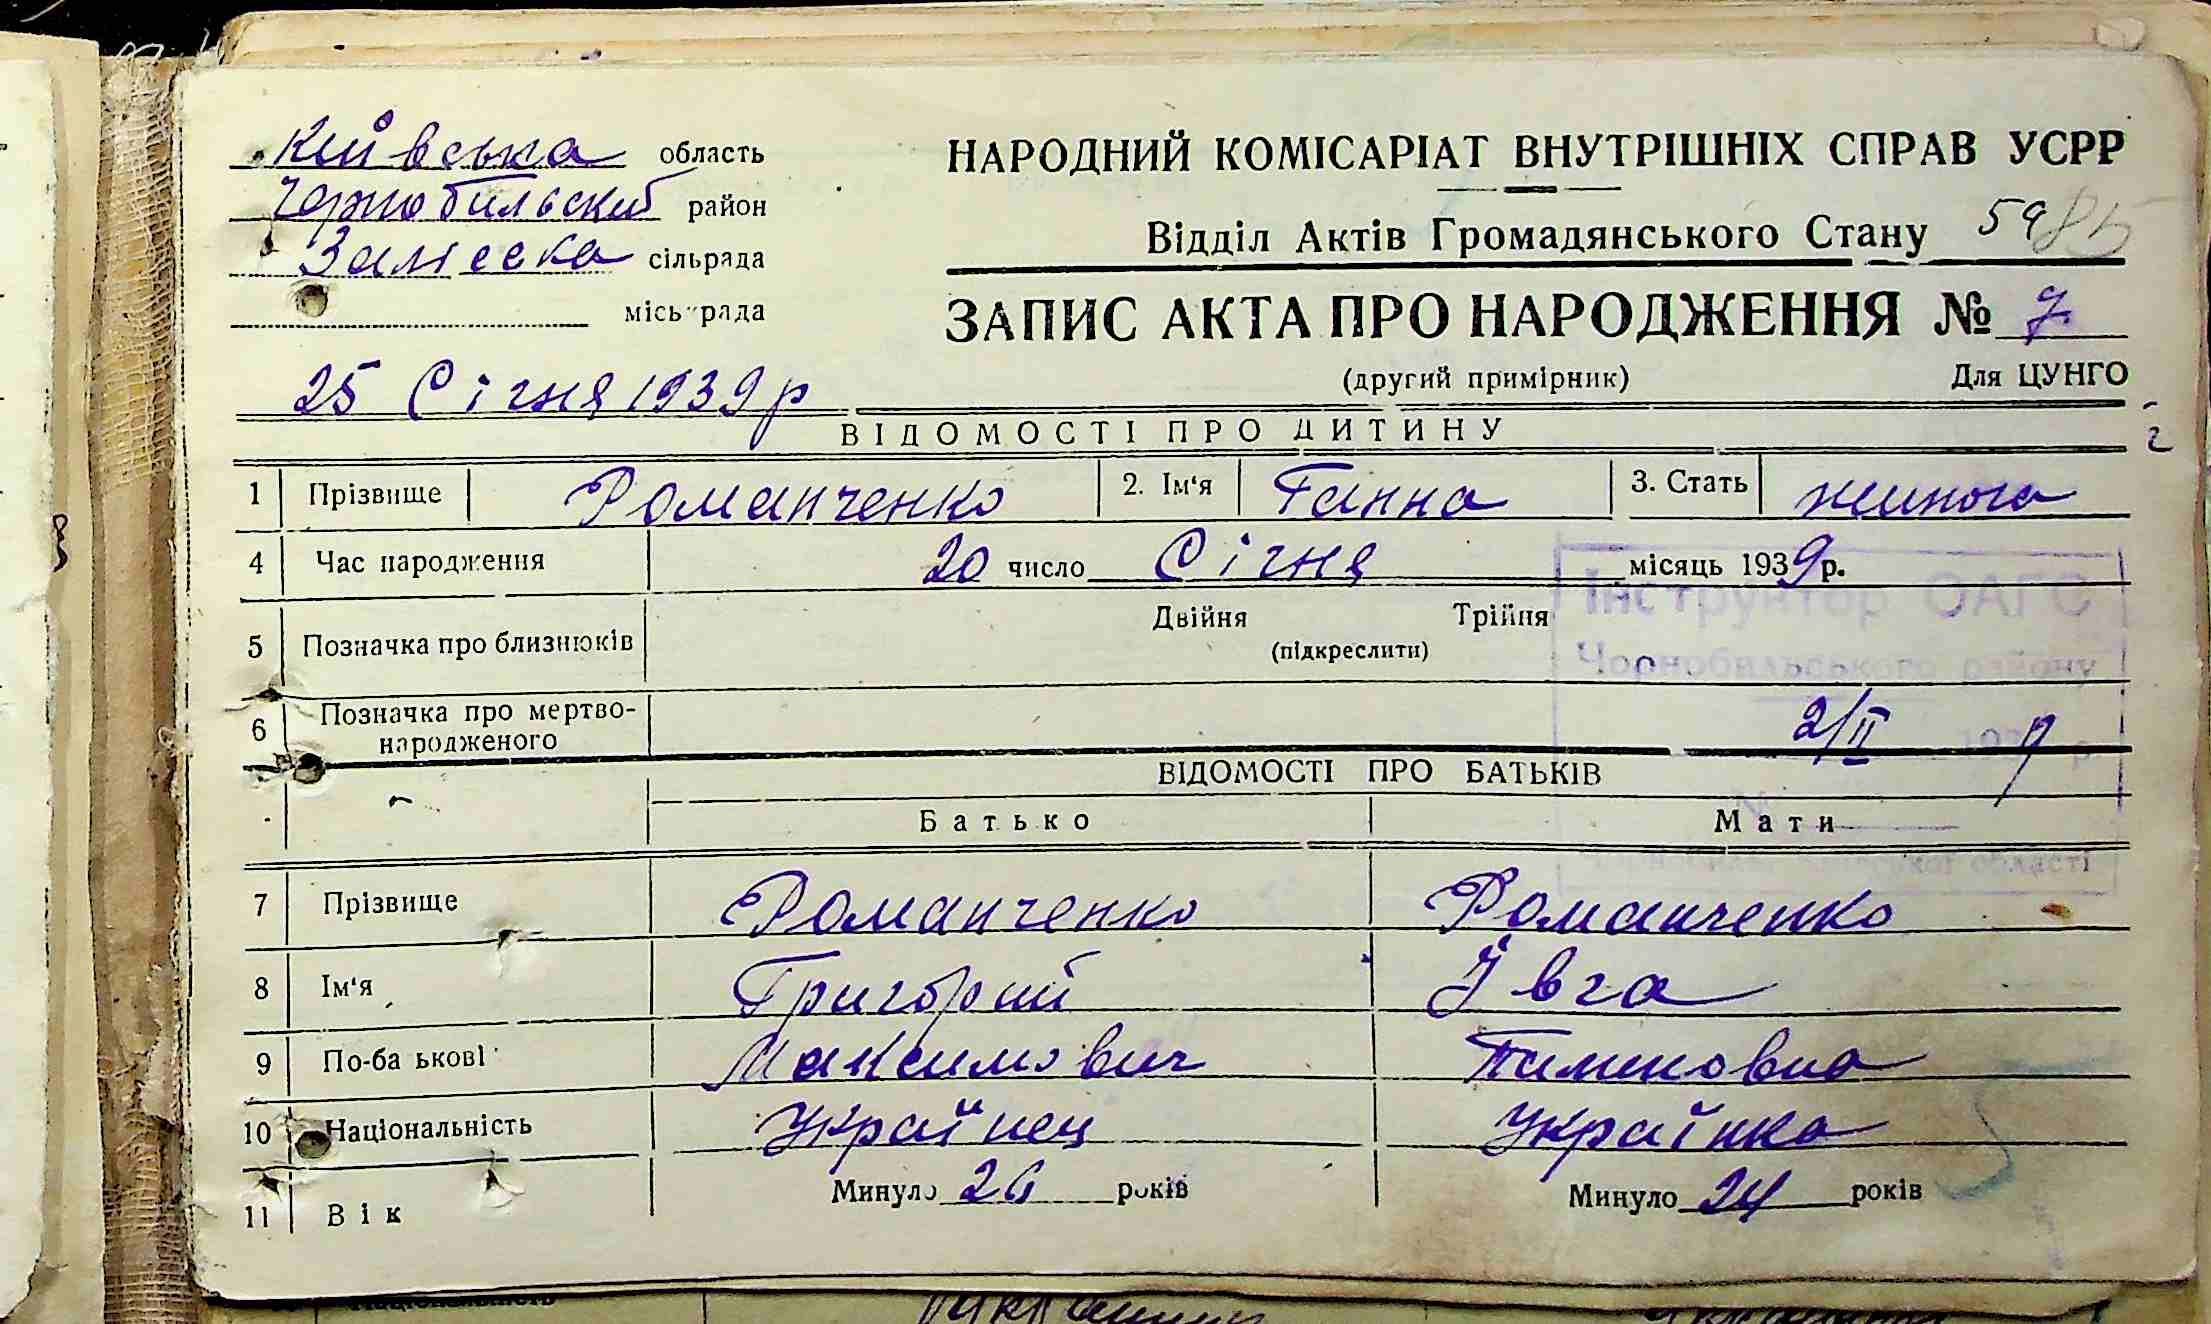 Київська область
Чорнобильский район
Залєська сільрада
міськрада
НАРОДНИЙ КОМІСАРІАТ ВНУТРІШНІХ СПРАВ УСРР
Відділ Актів Громадянського Стану 59 85
ЗАПИС АКТА ПРО НАРОДЖЕННЯ № 7
(другий примірник) Для ЦУНГО
25 Січня 1939 р
ВІДОМОСТІ ПРО ДИТИНУ
1 Прізвище Романченко 2. Ім'я Ганна 3. Стать жиноча
4 Час народження 20 число Січня місяць 1939 р.
Інструктор ОАГС
5 Позначка про близнюків Двійня Трійня
(підкреслити)
Чорнобильського району
6 Позначка про мертво-
народженого
2/II 193 р
ВІДОМОСТІ ПРО БАТЬКІВ
Батько Мати
області
7 Прізвище Романченко Романченко
8 Ім'я Григорий Ївга
9 По-ба ькові Максимович Пименовна
10 Національність Українец Українка
11 Вік Минуло 26 років Минуло 24 років
Національність